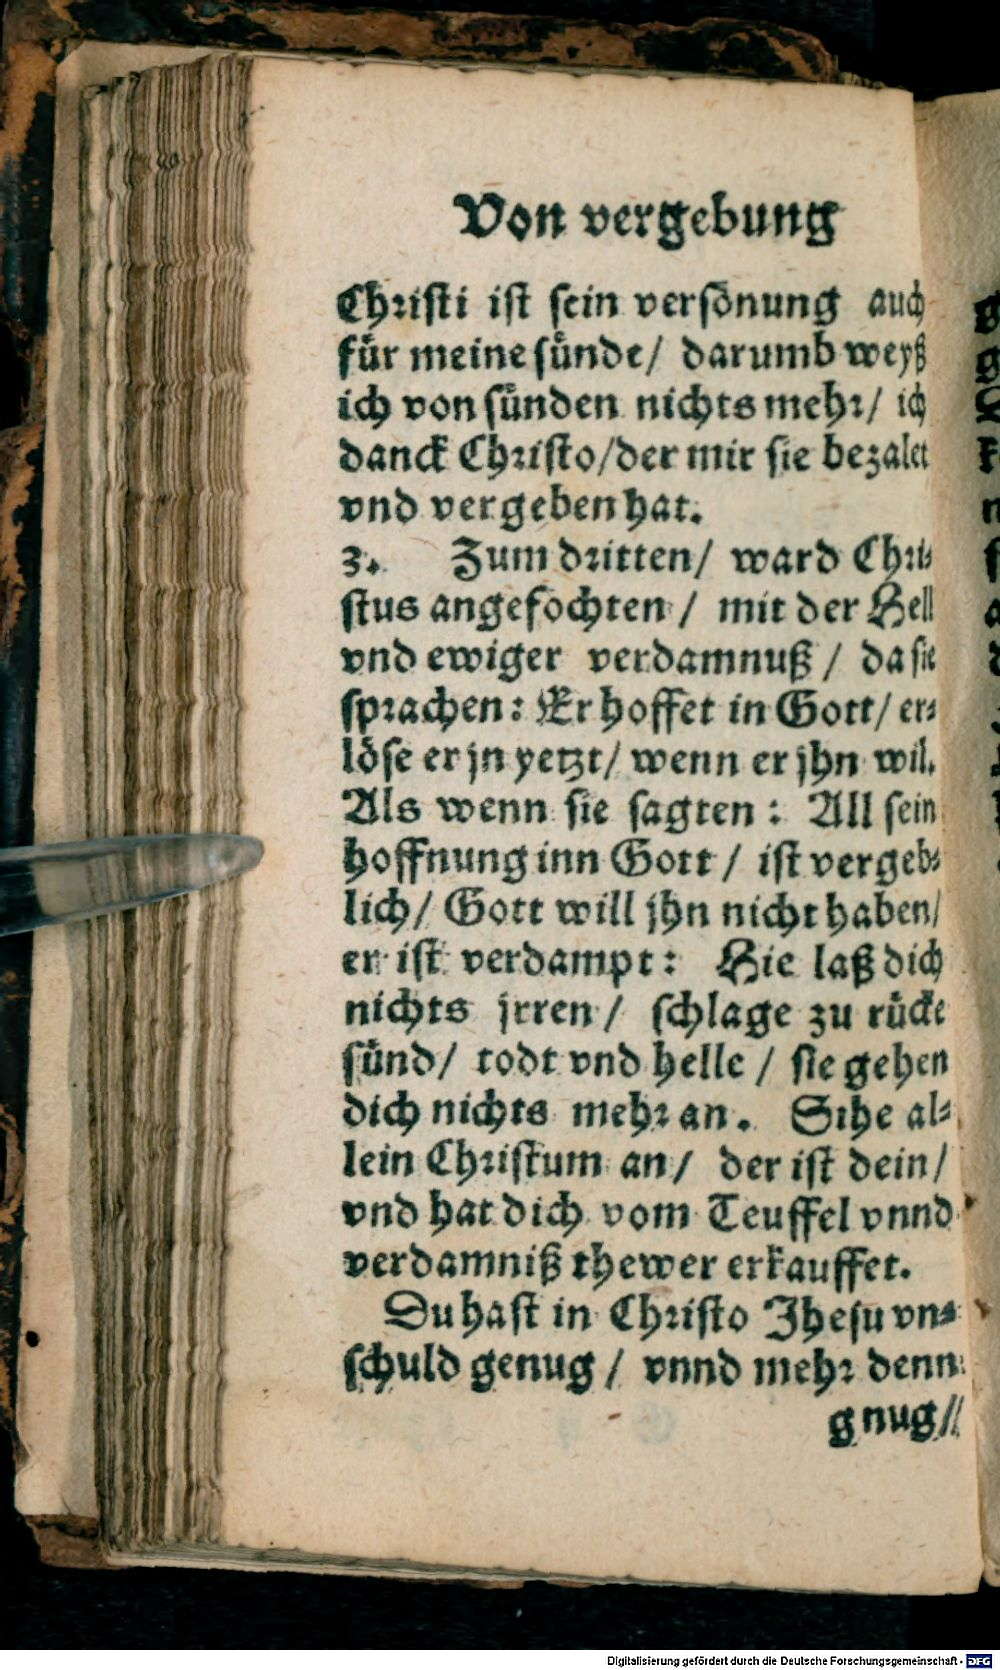 Von vergebung
Christi ist sein versönung auch
für meine sünde/ darumb weyß
ich von sünden nichts mehr/ ich
danck Christo/der mir sie bezalet
vnd vergeben hat.
3. Zum dritten/ ward Chri⸗
stus angefochten/ mit der Hell
vnd ewiger verdamnuß/ da sie
sprachen: Er hoffet in Gott/ er⸗
löse er jn yetzt/ wenn er jhn wil.
Als wenn sie sagten: All sein
hoffnung inn Gott/ ist vergeb⸗
lich/ Gott will jhn nicht haben/
er ist verdampt: Hie laß dich
nichts jrren/ schlage zu rücke
sünd/ todt vnd helle/ sie gehen
dich nichts mehr an. Sihe al⸗
lein Christum an/ der ist dein/
vnd hat dich vom Teuffel vnnd
verdamniß thewer erkauffet.
Du hast in Christo Jhesu vn⸗
schuld genug/ vnnd mehr denn
gnug//
Digitalisierung gefördert durch die Deutsche Forschungsgemeinschaft - DFG